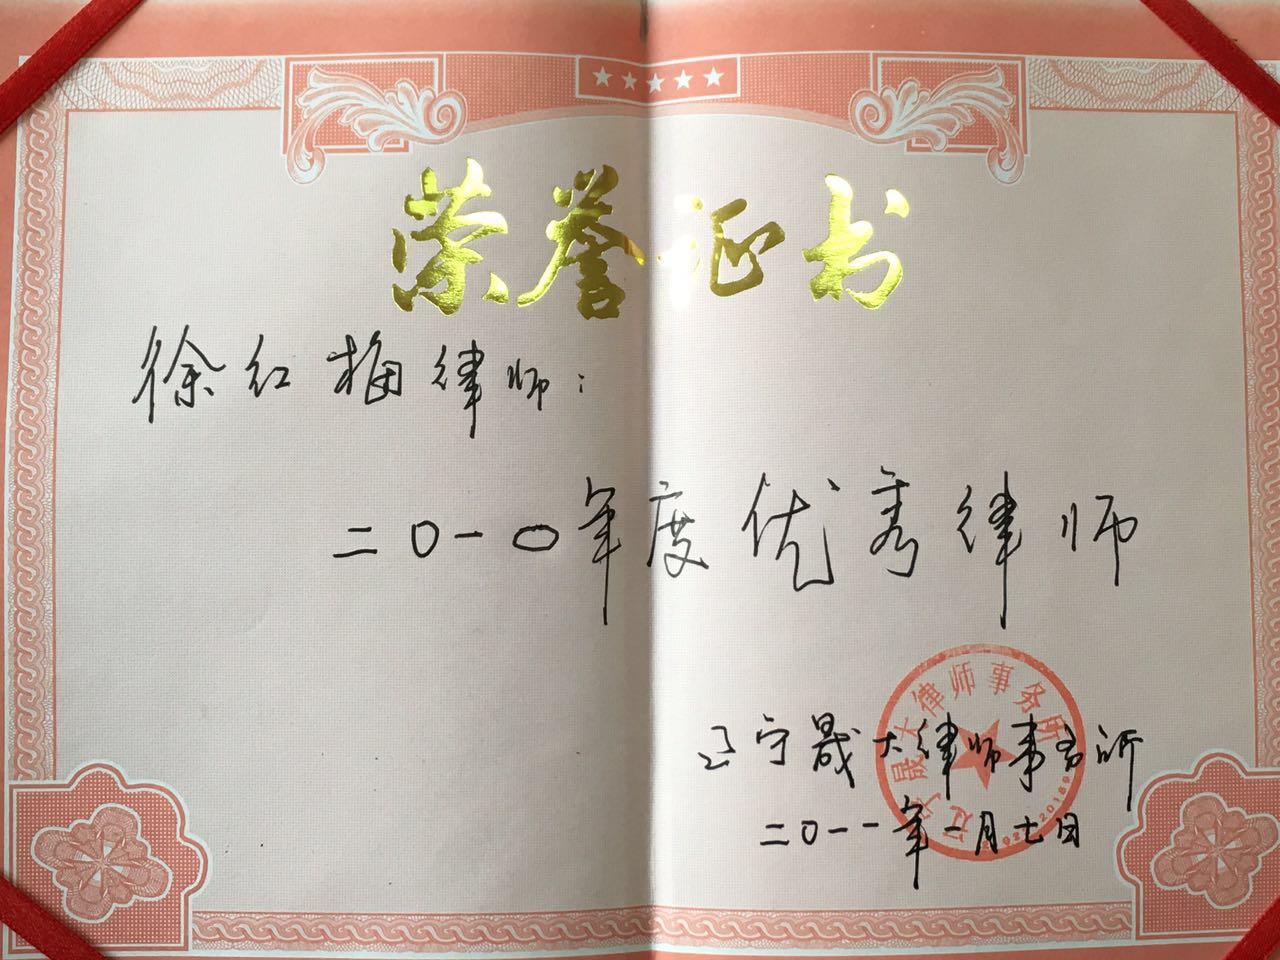 荣誉证书
徐红梅律师：
二〇一〇年度优秀律师
辽宁晟大律师事务所
二〇一一年一月七日
辽宁晟大律师事务所